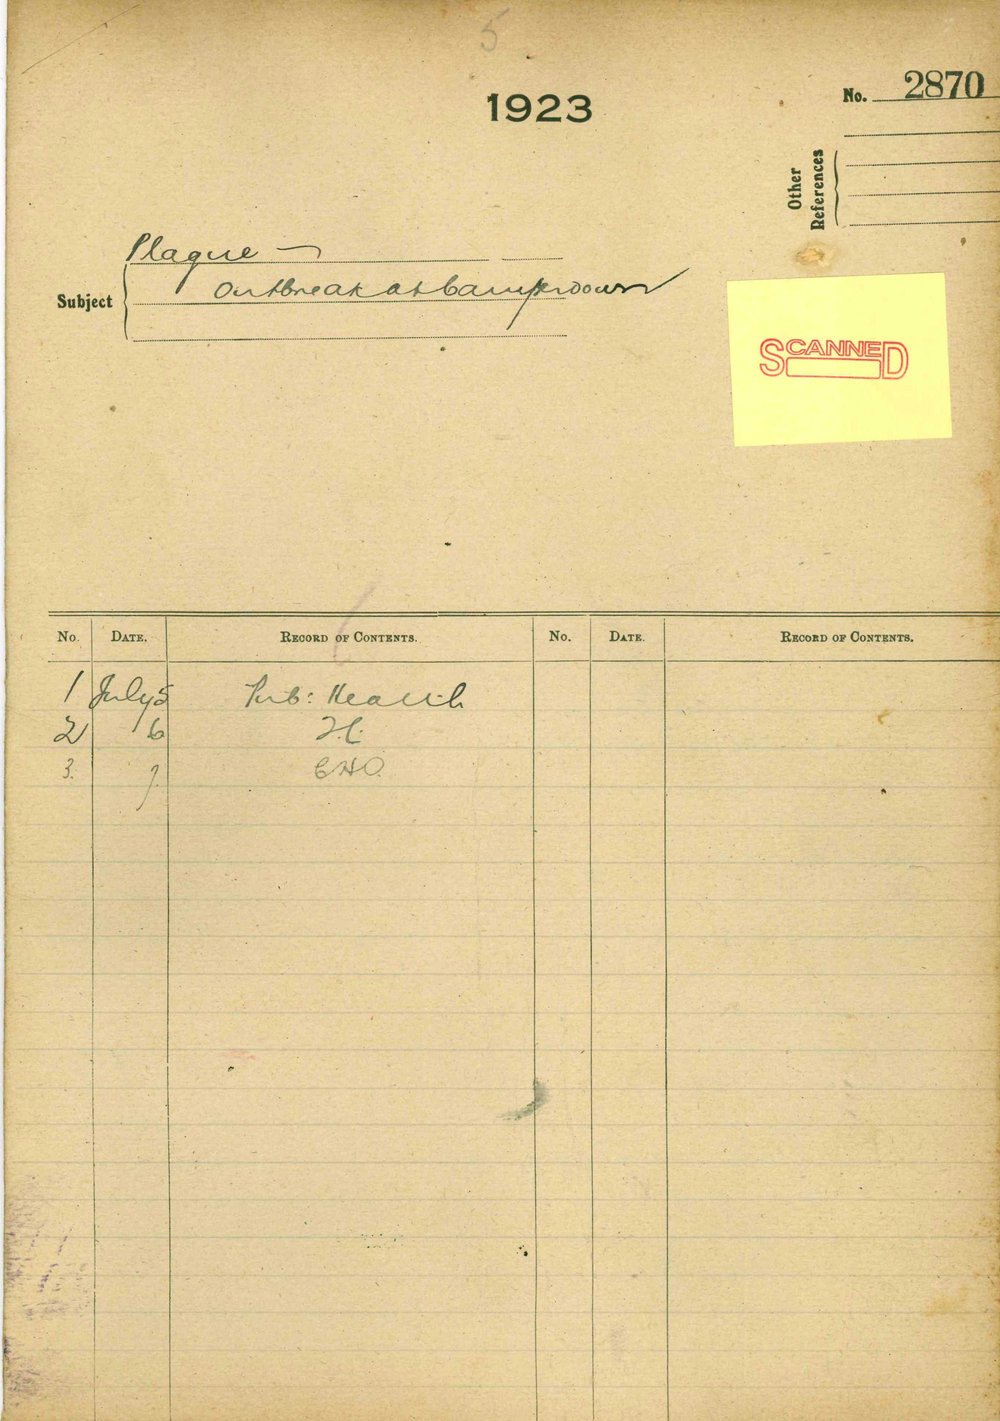 5
1923
No. 2870
Other References
Plague —
Subject
Outbreak at Camperdown
SCANNED
No. DATE. RECORD OF CONTENTS. No. DATE. RECORD OF CONTENTS.
1 July 5 Pub: Health
2 6
3. 7. CHO.